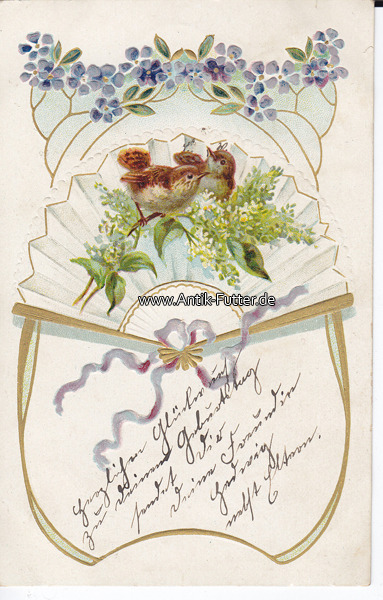 www.Antik-Futter.de
Herzlichen Glückwunsch
zu deinem Geburtstag
sendet Dir
deine Freundin
Hedwig
nebst Eltern.